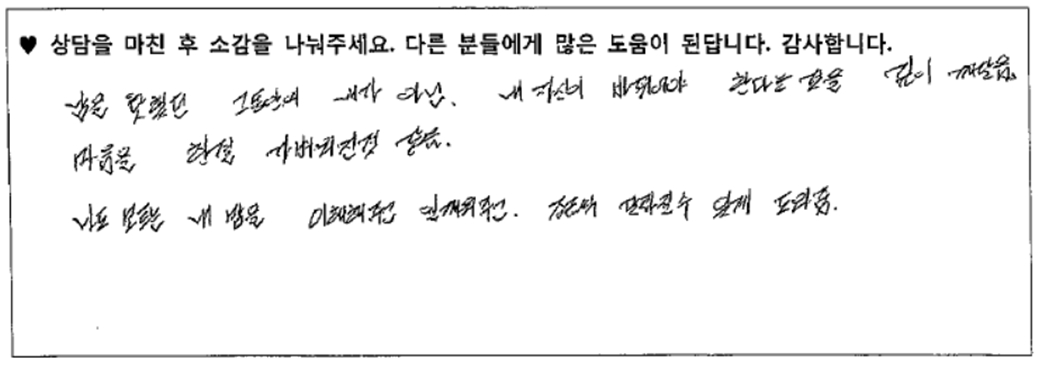 ♥ 상담을 마친 후 소감을 나눠주세요. 다른 분들에게 많은 도움이 된답니다. 감사합니다.
남을 탓했던 그동안에 내가 아닌. 내 자신이 바뀌어야 한다는 것을 깊이 깨달음.
마음을 한결 가벼워진것 같음.
나도 모르는 내 맘을 이해해주고 일깨워주고. 달라질수 있게 도와줌.